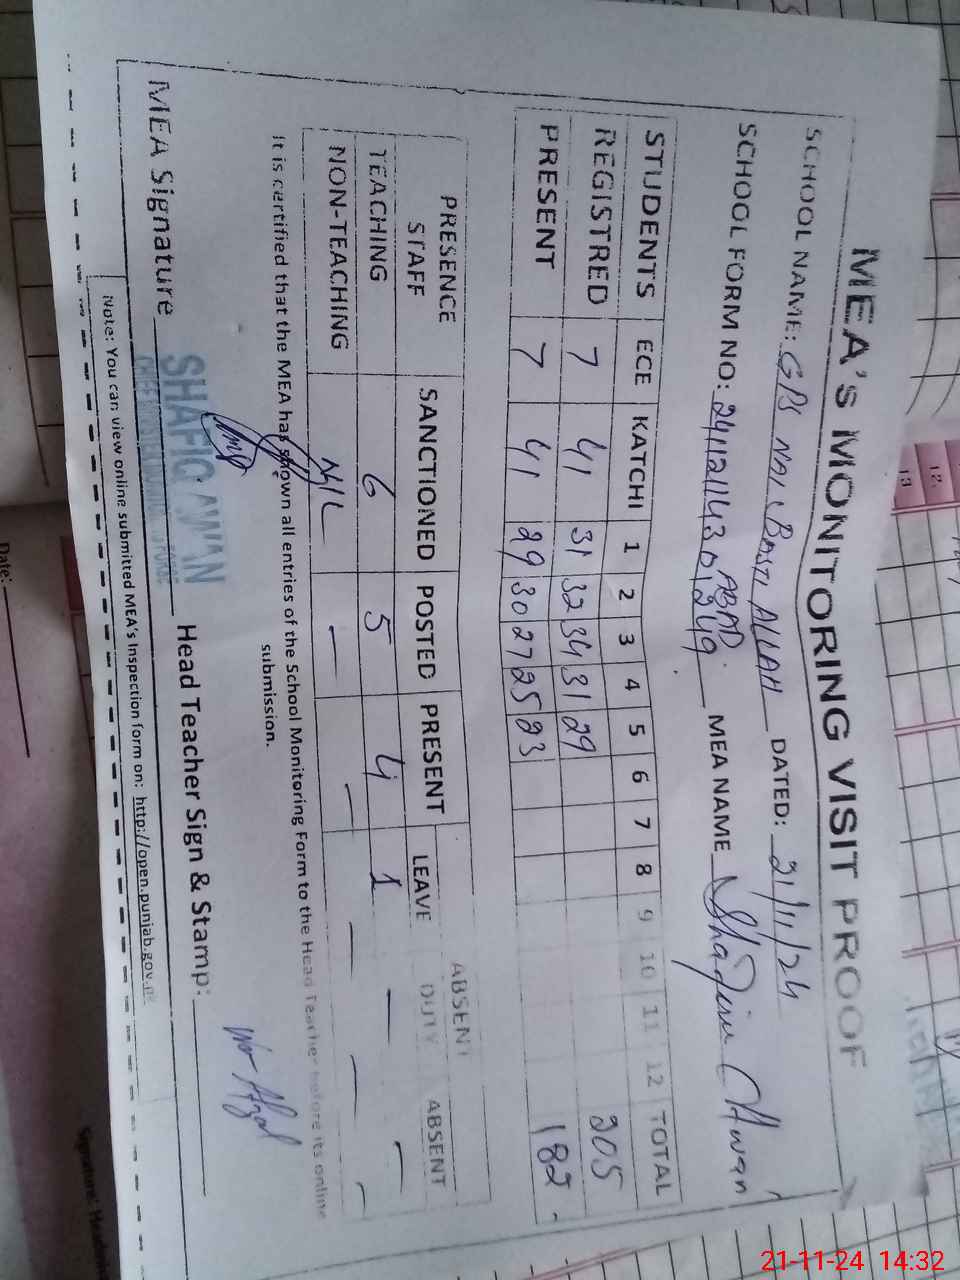 MEA'S MONITORING VISIT PROOF
SCHOOL NAME: GPS NAI BASTI ALLAH ABAD. DATED: 21/11/24
SCHOOL FORM NO: MEA NAME Shafiq Awan
STUDENTS ECE KATCHI 1 2 3 4 5 6 7 8 9 10 11 12 TOTAL
REGISTRED 7 41 31 32 34 31 29 205
PRESENT 7 41 29 30 27 25 23 182
PRESENCE ABSENT
STAFF SANCTIONED POSTED PRESENT LEAVE DUTY ABSENT
TEACHING 6 5 4 1 — —
NON-TEACHING NIL — — — — —
It is certified that the MEA has shown all entries of the School Monitoring Form to the Head Teacher before its online
submission.
MEA Signature Head Teacher Sign & Stamp:
SHAFIQ AWAN
Note: You can view online submitted MEA's Inspection form on: http://open.punjab.gov.pk
12.
13
Date:
Signature:
21-11-24 14:32